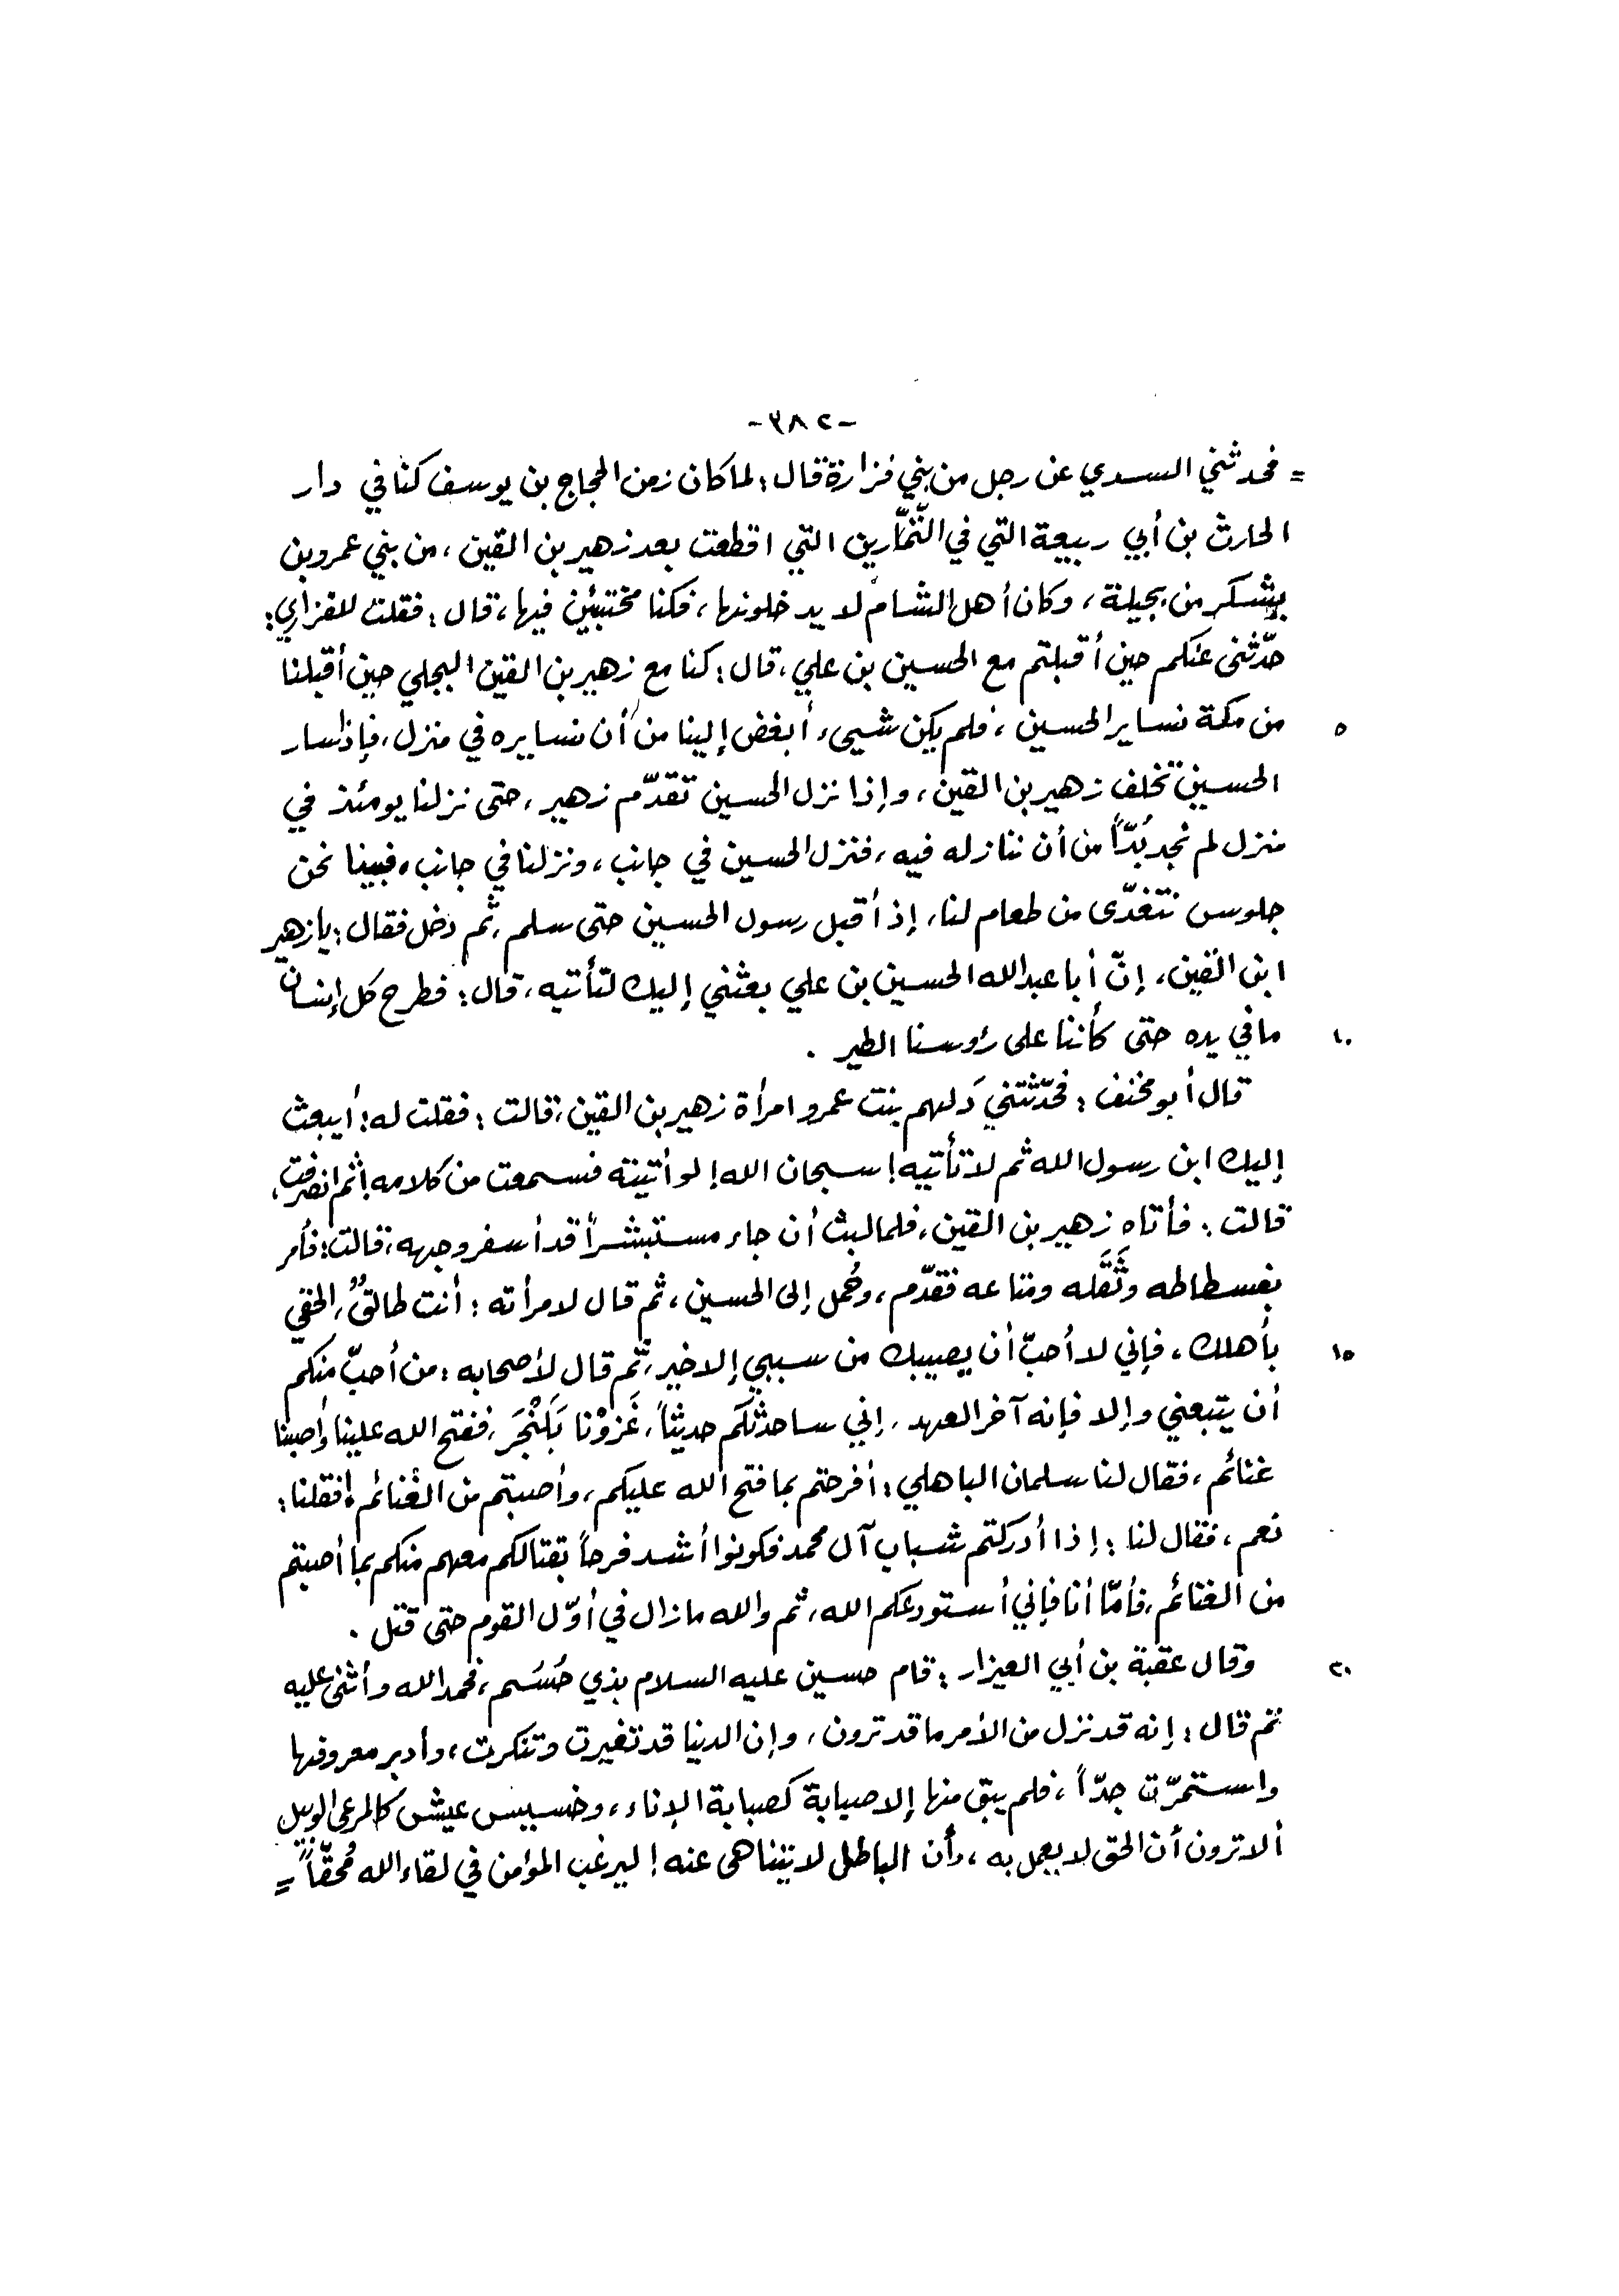 -٣٨٢-
= فحدثني السدي عن رجل من بني فزارة قال: لما كان زمن الحجاج بن يوسف كنا في دار
الحارث بن أبي ربيعة التي في التّمّارين التي اقطعت بعد زهير بن القين، من بني عمرو بن
يشكر من بجيلة، وكان أهل الشام لا يدخلونها، فكنا مختبئين فيها، قال: فقلت للفزاري:
حدّثني عنكم حين أقبلتم مع الحسين بن علي، قال: كنا مع زهير بن القين البجلي حين أقبلنا
٥ من مكة نساير الحسين، فلم يكن شيىء أبغض إلينا من أن نسايره في منزل، فإذا سار
الحسين تخلف زهير بن القين، وإذا نزل الحسين تقدّم زهير، حتى نزلنا يومئذ في
منزل لم نجد بُدّاً من أن ننازله فيه، فنزل الحسين في جانب، ونزلنا في جانب، فبينا نحن
جلوس نتغدّى من طعام لنا، إذ أقبل رسول الحسين حتى سلم، ثم دخل فقال: يا زهير
ابن القين، إنّ أبا عبدالله الحسين بن علي بعثني إليك لتأتيه، قال: فطرح كل إنسان
١٠ ما في يده حتى كأننا على رؤوسنا الطير .
قال أبو مخنف: فحّدثتني دَلهم بنت عمرو امرأة زهير بن القين، قالت: فقلت له: أيبعث
إليك ابن رسول الله ثم لا تأتيه! سبحان الله! لو أتيته فسمعت من كلامه! ثم انصرفت،
قالت: فأتاه زهير بن القين، فلما لبث أن جاء مستبشراً قد أسفر وجهه، قالت: فأمر
بفسطاطه وثَقَله ومتاعه فقدّم، وحُمل إلى الحسين، ثم قال لامرأته: أنت طالقٌ، الحقي
١٥ بأهلك، فإني لا أحبّ أن يصيبك من سببي إلا خير، ثم قال لأصحابه: من أحبّ منكم
أن يتبعني وإلا فإنه آخر العهد، إني ساحدثكم حديثاً، غَزوْنا بَلَنْجَرَ، ففتح الله علينا وأصبنا
غنائم، فقال لنا سلمان الباهلي: أفرحتم بما فتح الله عليكم، وأصبتم من الغنائم؟ فقلنا:
نعم، فقال لنا: إذا أدركتم شباب آل محمد فكونوا أشد فرحاً بقتالكم معهم منكم بما أصبتم
من الغنائم، فأمّا أنا فإني أستودعكم الله، ثم والله مازال في أوّل القوم حتى قتل .
٢٠ وقال عقبة بن أبي العيزار: قام حسين عليه السلام بذي حُسُم، فحمد الله وأثنى عليه
ثم قال: إنه قد نزل من الأمر ما قد ترون، وإن الدنيا قد تغيرت وتنكرت، وأدبر معروفها
واستمرّت جدّاً، فلم يبق منها إلا صبابة كصبابة الإناء، وخسيس عيش كالمرعى الوبيل
ألا ترون أن الحق لا يعمل به، وأن الباطل لا يتناهى عنه! ليرغب المؤمن في لقاء الله مُحقّاً، =